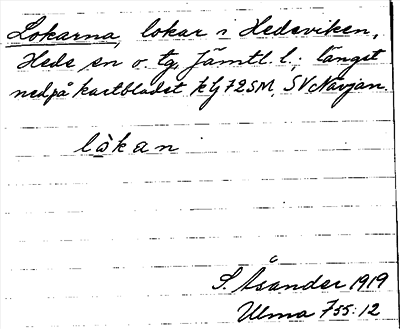 Lokarna, lokar i Hedeviken,
Hede sn o. tg Jämtl. l.; längst
ned på kartbladet 72 SM, SV Nävjan.
låkan
S. Åsander 1919
Ulma 755:12